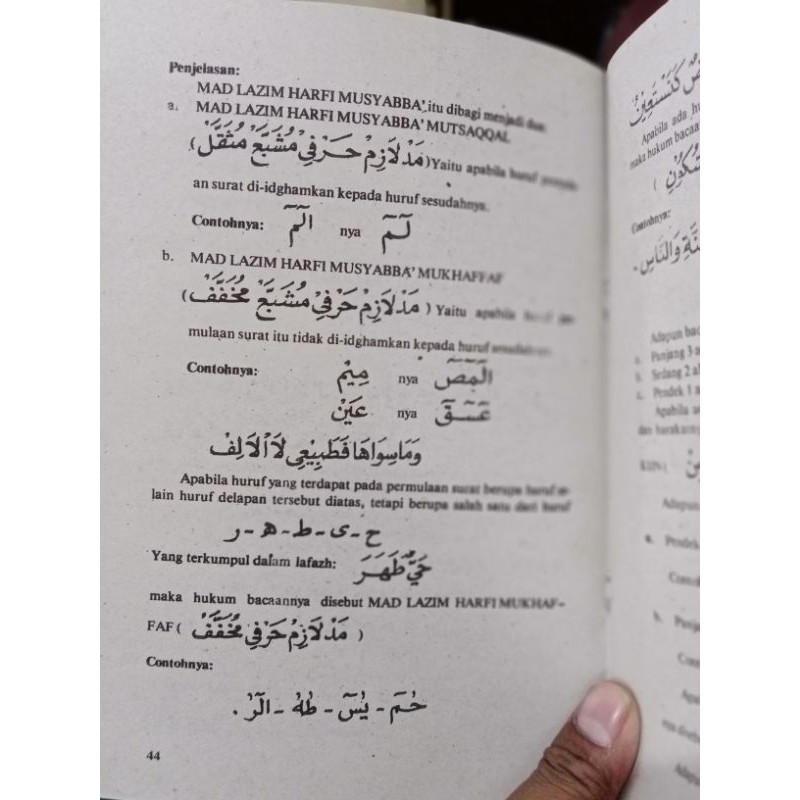 Penjelasan:
MAD LAZIM HARFI MUSYABBA' itu dibagi menjadi dua:
a. MAD LAZIM HARFI MUSYABBA' MUTSAQQAL
(مَدْ لَازِمْ حَرْفِيْ مُشَبَّعْ مُثَقَّلْ) Yaitu apabila huruf
an surat di-idghamkan kepada huruf sesudahnya.
Contohnya: الٓمٓ nya لَــمٓ
b. MAD LAZIM HARFI MUSYABBA' MUKHAFFAF
(مَدْ لَازِمْ حَرْفِيْ مُشَبَّعْ مُخَفَّفْ) Yaitu apabila huruf
mulaan surat itu tidak di-idghamkan kepada huruf sesudahnya.
Contohnya: مِيْمْ nya الٓمٓصٓ
عَيْنْ nya عٓسٓقٓ
وَمَاسِوَاهَا فَطَبِيْعِى لَا اْلَالِفْ
Apabila huruf yang terdapat pada permulaan surat berupa huruf se-
lain huruf delapan tersebut diatas, tetapi berupa salah satu dari huruf
ح - ى - ط - ه - ر
Yang terkumpul dalam lafazh: حَيٌّ طَهَرَ
maka hukum bacaannya disebut MAD LAZIM HARFI MUKHAF-
FAF ( مَدْ لَازِمْ حَرْفِيْ مُخَفَّفْ )
Contohnya:
حٰمٓ - يٰسٓ - طٰهٰ - الٓرٰ .
44
نَسْتَعِيْنُ
Apabila ada hu
maka hukum bacaan
Contohnya:
وَالنَّاسِ .
Adapun bac
a. Panjang 3 a
b. Sedang 2 al
c. Pendek 1 a
Apabila ad
dan harakatny
Adapun
a. Pendek
b.